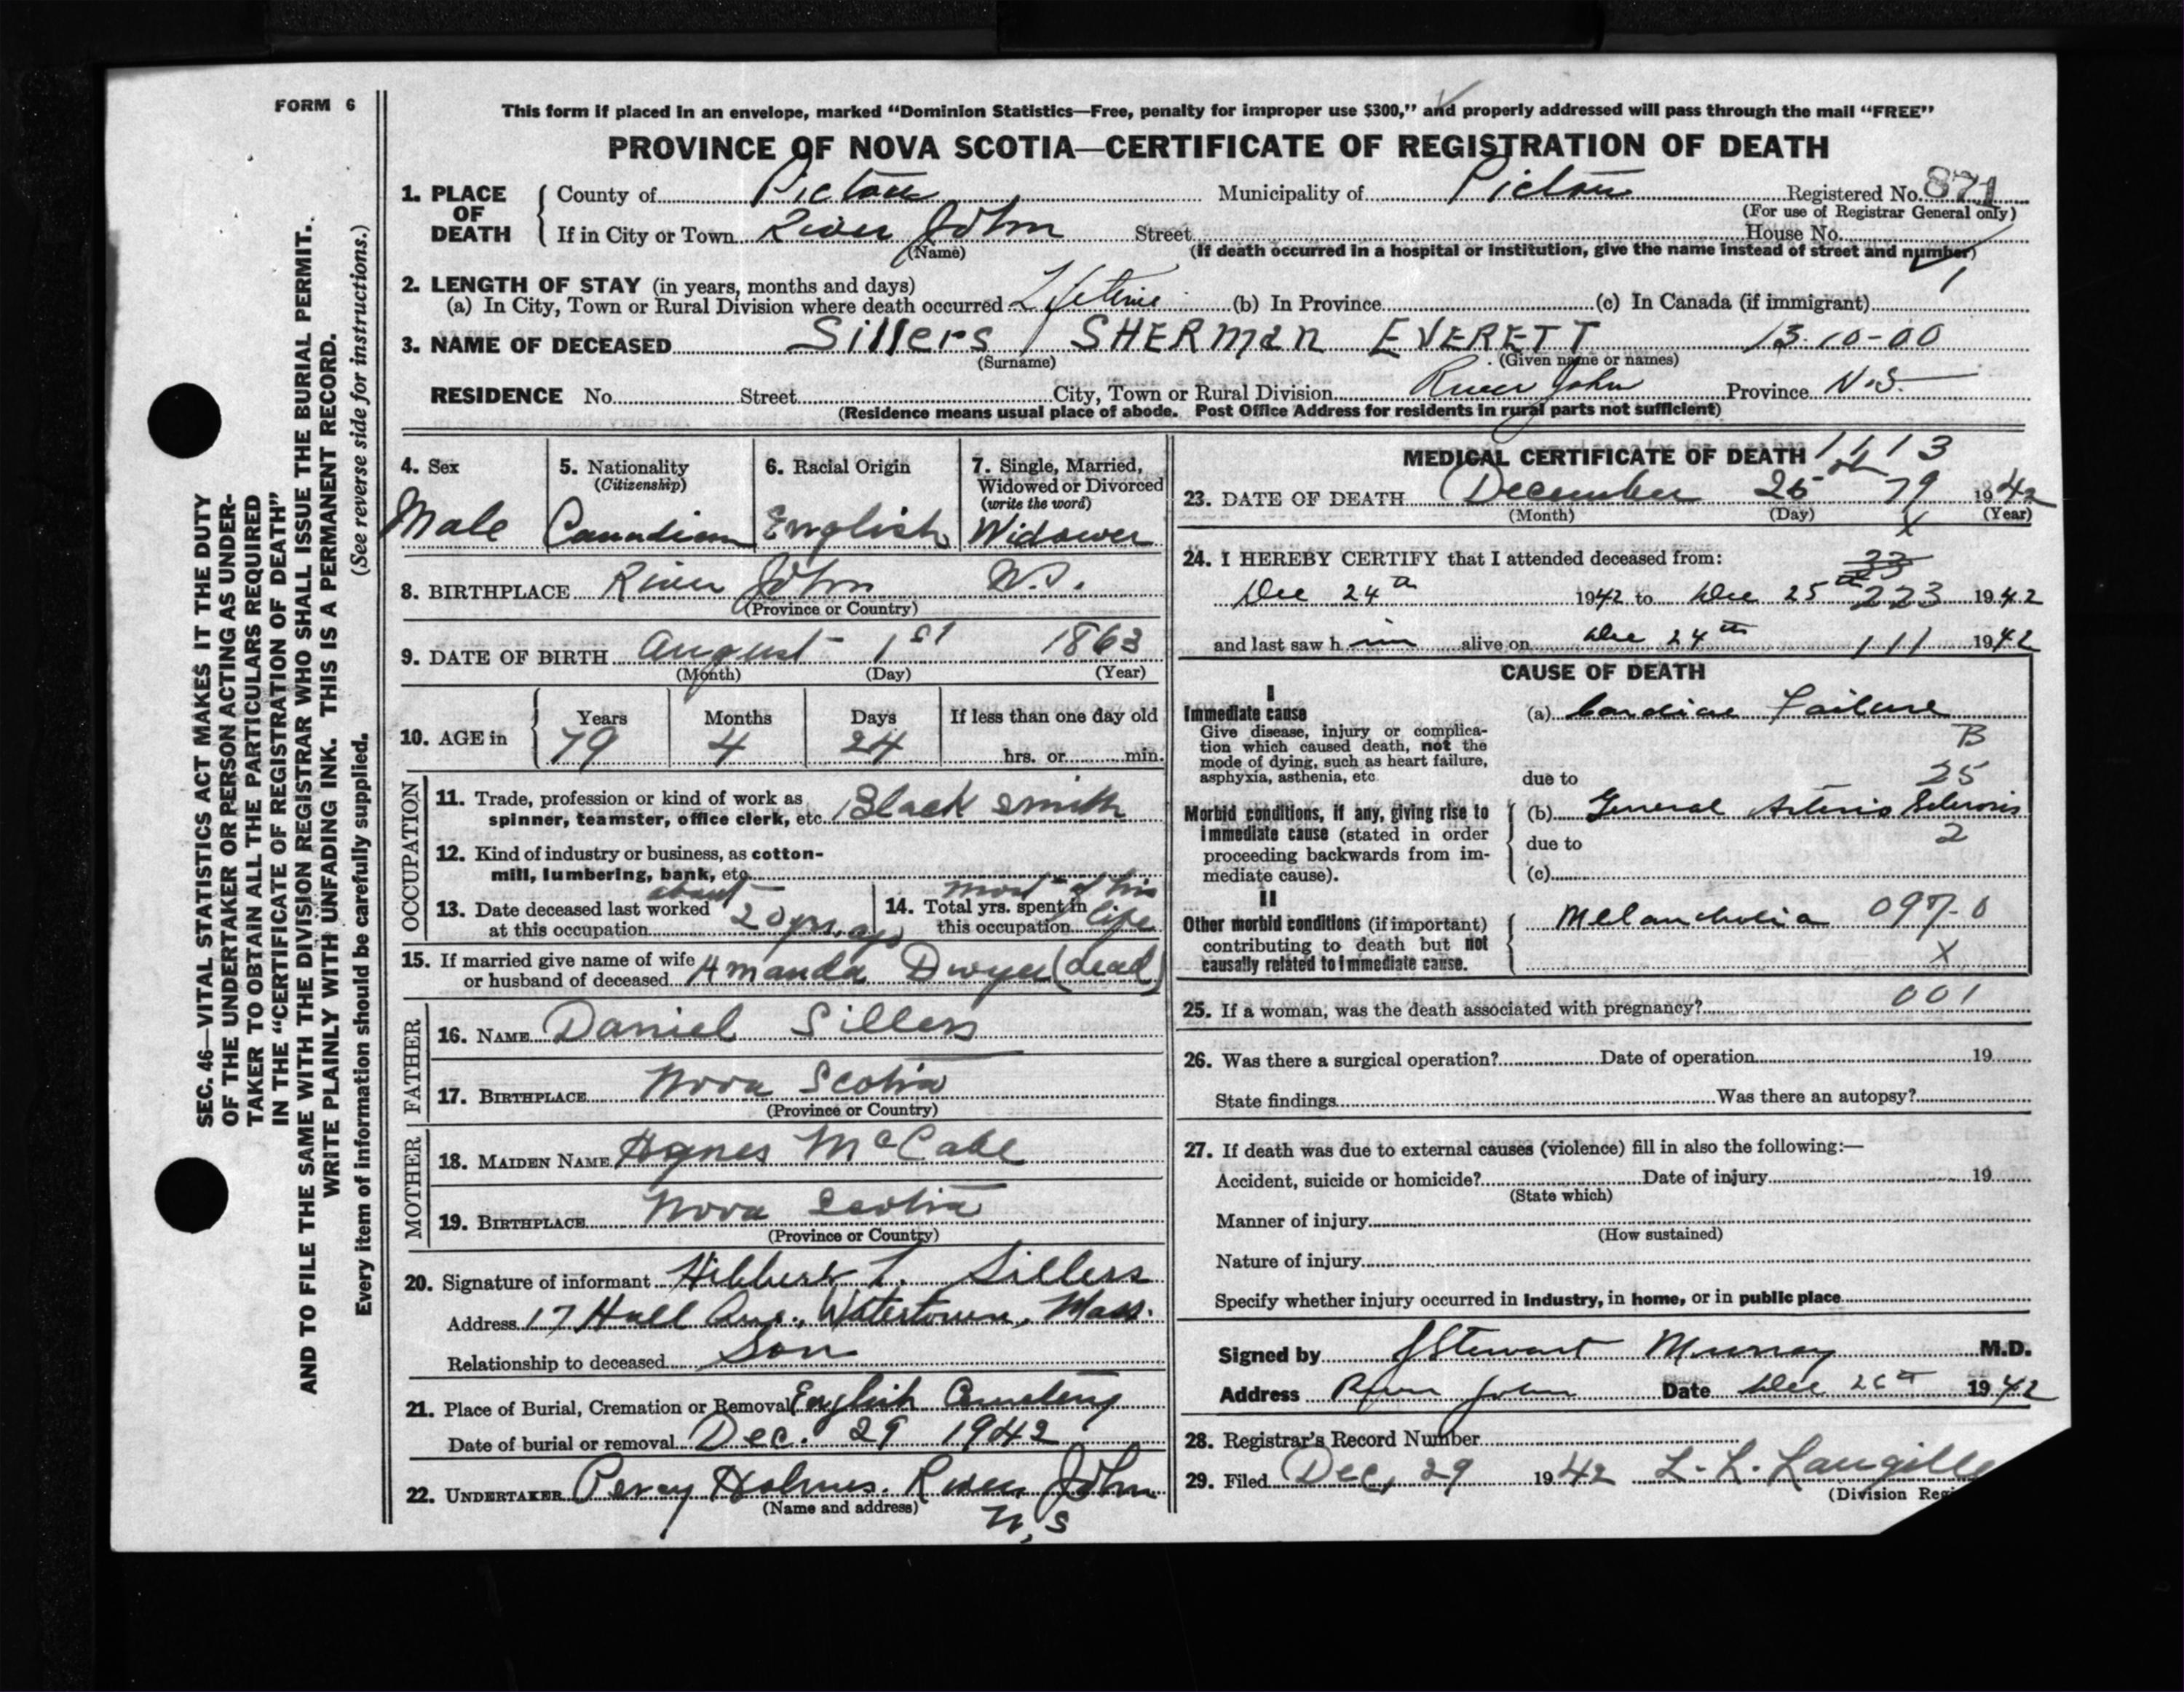 FORM 6
This form if placed in an envelope, marked “Dominion Statistics—Free, penalty for improper use $300,” and properly addressed will pass through the mail “FREE”
PROVINCE OF NOVA SCOTIA—CERTIFICATE OF REGISTRATION OF DEATH
SEC. 46—VITAL STATISTICS ACT MAKES IT THE DUTY
OF THE UNDERTAKER OR PERSON ACTING AS UNDER-
TAKER TO OBTAIN ALL THE PARTICULARS REQUIRED
IN THE “CERTIFICATE OF REGISTRATION OF DEATH”
AND TO FILE THE SAME WITH THE DIVISION REGISTRAR WHO SHALL ISSUE THE BURIAL PERMIT.
WRITE PLAINLY WITH UNFADING INK. THIS IS A PERMANENT RECORD.
Every item of information should be carefully supplied. (See reverse side for instructions.)
1. PLACE OF DEATH County of Pictou Municipality of Pictou Registered No. 871
(For use of Registrar General only)
If in City or Town River John Street House No.
(Name) (If death occurred in a hospital or institution, give the name instead of street and number)
2. LENGTH OF STAY (in years, months and days)
(a) In City, Town or Rural Division where death occurred Lifetime (b) In Province (c) In Canada (if immigrant)
3. NAME OF DECEASED Sillers / SHERMAN EVERETT 13 10-00
(Surname) (Given name or names)
RESIDENCE No. Street City, Town or Rural Division River John Province N.S.
(Residence means usual place of abode. Post Office Address for residents in rural parts not sufficient)
4. Sex 5. Nationality (Citizenship) 6. Racial Origin 7. Single, Married, Widowed or Divorced (write the word)
Male Canadian English Widower
8. BIRTHPLACE River John N.S.
(Province or Country)
9. DATE OF BIRTH August 1st 1863
(Month) (Day) (Year)
10. AGE in Years Months Days If less than one day old
79 4 24 hrs. or min.
OCCUPATION
11. Trade, profession or kind of work as
spinner, teamster, office clerk, etc. Black smith
12. Kind of industry or business, as cotton-
mill, lumbering, bank, etc.
13. Date deceased last worked at this occupation about 20 yrs. ago 14. Total yrs. spent in this occupation most of his life
15. If married give name of wife
or husband of deceased Amanda Dwyer (dead)
FATHER
16. NAME Daniel Sillers
17. BIRTHPLACE Nova Scotia
(Province or Country)
MOTHER
18. MAIDEN NAME Agnes McCabe
19. BIRTHPLACE Nova Scotia
(Province or Country)
20. Signature of informant Hibbert L. Sillers
Address 17 Hall Ave., Watertown, Mass.
Relationship to deceased Son
21. Place of Burial, Cremation or Removal English Cemetery
Date of burial or removal Dec. 29 1942
22. UNDERTAKER Percy Holmes. River John
(Name and address) N.S
MEDICAL CERTIFICATE OF DEATH 1113
23. DATE OF DEATH December 25th 79 1942
(Month) (Day) (Year)
X
24. I HEREBY CERTIFY that I attended deceased from: 33
Dec 24th 1942 to Dec 25th 223 1942
and last saw h im alive on Dec 24th 111 1942
CAUSE OF DEATH
I
Immediate cause (a) Cardiac Failure
Give disease, injury or complica-
tion which caused death, not the
mode of dying, such as heart failure,
asphyxia, asthenia, etc.
B
due to 25
Morbid conditions, if any, giving rise to
immediate cause (stated in order
proceeding backwards from im-
mediate cause).
(b) General Arterio Sclerosis
due to 2
(c)
II
Other morbid conditions (if important)
contributing to death but not
causally related to immediate cause.
Melancholia 097-0
X
25. If a woman, was the death associated with pregnancy? 001
26. Was there a surgical operation? Date of operation 19
State findings Was there an autopsy?
27. If death was due to external causes (violence) fill in also the following:—
Accident, suicide or homicide? Date of injury 19
(State which)
Manner of injury
(How sustained)
Nature of injury
Specify whether injury occurred in industry, in home, or in public place
Signed by J Stewart Murray M.D.
Address River John Date Dec 26th 1942
28. Registrar’s Record Number
29. Filed Dec, 29 1942 L. L. Langille
(Division Reg